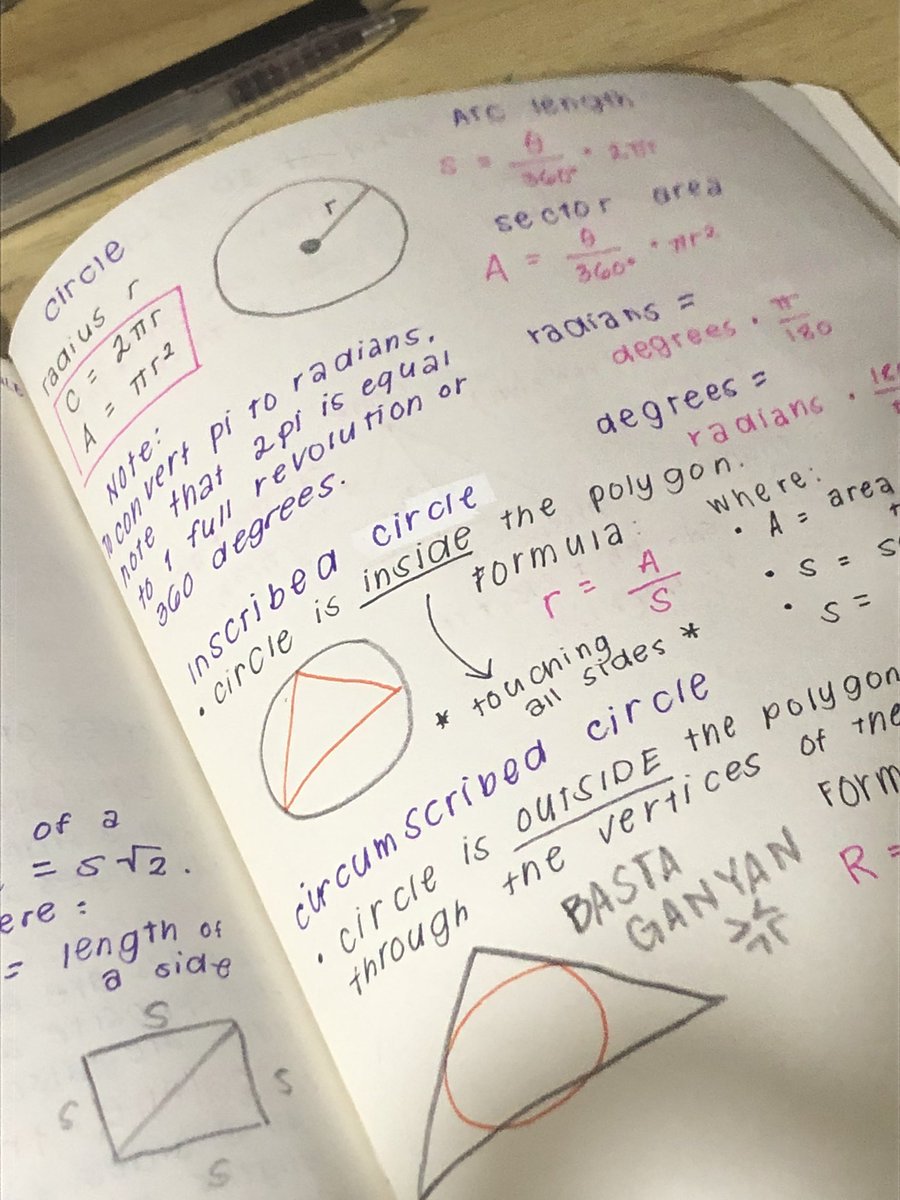 circle
radius r
C = 2πr
A = πr²
r
Arc length
s = θ/360° · 2πr
sector area
A = θ/360° · πr²
radians =
degrees · π/180
degrees =
radians ·
Note:
convert pi to radians.
note that 2pi is equal
to 1 full revolution or
360 degrees.
inscribed circle
• circle is inside the polygon.
Formula:
r = A/S
where:
• A = area
• s =
• s =
* touching
all sides *
circumscribed circle
• circle is OUTSIDE the polygon
through the vertices of the
Form
R =
BASTA
GANYAN
of a
= s√2.
ere:
= length of
a side
S
S
S
S